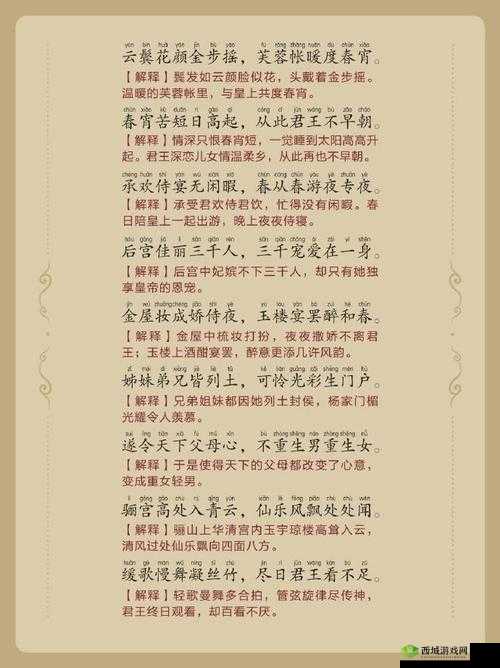 yún bìn huā yán jīn bù yáo fú róng zhàng nuǎn dù chūn xiāo
云鬓花颜金步摇，芙蓉帐暖度春宵。
【解释】鬓发如云颜脸似花，头戴着金步摇。
温暖的芙蓉帐里，与皇上共度春宵。
chūn xiāo kǔ duǎn rì gāo qǐ cóng cǐ jūn wáng bù zǎo cháo
春宵苦短日高起，从此君王不早朝。
【解释】情深只恨春宵短，一觉睡到太阳高高升
起。君王深恋儿女情温柔乡，从此再也不早朝。
chéng huān shì yàn wú xián xiá chūn cóng chūn yóu yè zhuān yè
承欢侍宴无闲暇，春从春游夜专夜。
【解释】承受君欢侍君饮，忙得没有闲暇。春
日陪皇上一起出游，晚上夜夜侍寝。
hòu gōng jiā lì sān qiān rén sān qiān chǒng ài zài yì shēn
后宫佳丽三千人，三千宠爱在一身。
【解释】后宫中妃嫔不下三千人，却只有她独
享皇帝的恩宠。
jīn wū zhuāng chéng jiāo shì yè yù lóu yàn bà zuì hé chūn
金屋妆成娇侍夜，玉楼宴罢醉和春。
【解释】金屋中梳妆打扮，夜夜撒娇不离君
王；玉楼上酒酣宴罢，醉意更添几许风韵。
姊妹弟兄皆列土，可怜光彩生门户。
【解释】兄弟姐妹都因她列土封侯，杨家门楣
光耀令人羡慕。
遂令天下父母心，不重生男重生女。
【解释】于是使得天下的父母都改变了心意，
变成重女轻男。
骊宫高处入青云，仙乐风飘处处闻。
【解释】骊山上华清宫内玉宇琼楼高耸入云，
清风过处仙乐飘向四面八方。
缓歌慢舞凝丝竹，尽日君王看不足。
【解释】轻歌曼舞多合拍，管弦旋律尽传神，
君王终日观看，却百看不厌。
西城游戏网